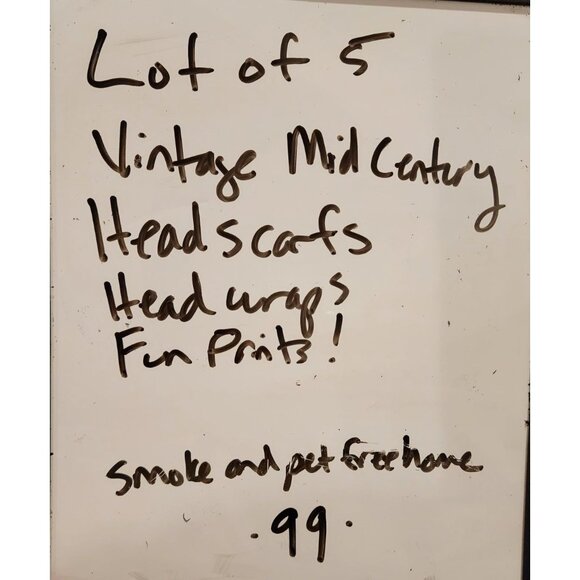 Lot of 5
Vintage Mid Century
Headscarfs
Head wraps
Fun Prints!
smoke and pet free home
.99.